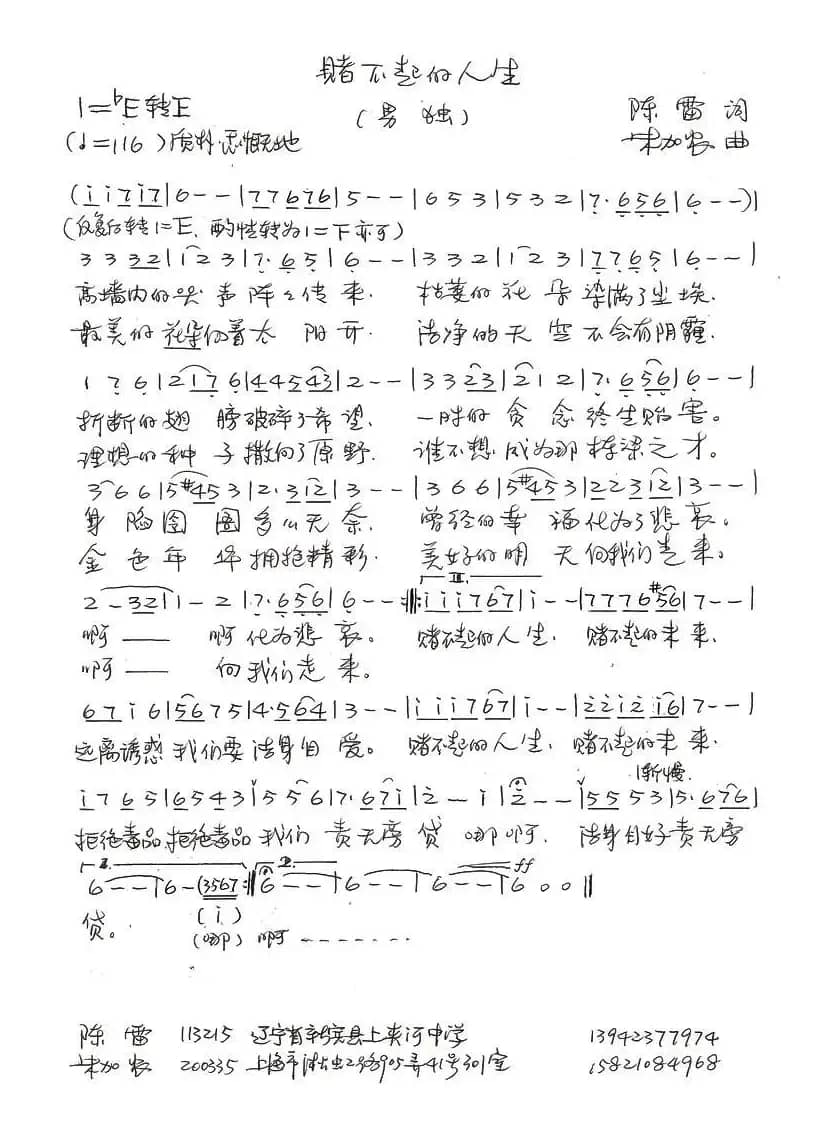 赌不起的人生
1=♭E转E
(男 独)
陈 雷 词
(♩=116) 质朴 感慨地
朱加农 曲
(i i 7 i 7 | 6 - - | 7 7 6 7 6 | 5 - - | 6 5 3 | 5 3 2 | 7· 6 5 6 | 6 - - )|
(反复后转1=E、酌情转为1=F亦可)
3 3 3 2 | 1 2 3 | 7· 6 5 | 6 - - | 3 3 2 | 1 2 3 | 7 7 6 5 | 6 - - |
高墙内的哭 声 阵々传 来. 枯萎的 花 朵 染满了尘埃.
最美的花朵仰着太 阳开. 洁净的天 空 不会有阴霾.
1 7 6 | 2 1 7 6 | 4 4 5 4 3 | 2 - - | 3 3 2 3 | 2 1 2 | 7· 6 5 6 | 6 - - |
折断的翅 膀破碎了希望. 一时的 贪 念 终生贻害。
理想的种 子撒向了原野. 谁不想成为那栋梁之才。
3 6 6 | 5 #4 5 3 | 2· 3 1 2 | 3 - - | 3 6 6 | 5 #4 5 3 | 2 2 3 1 2 | 3 - - |
身 陷囹 圄多么无奈. 曾经的幸 福化为了悲 哀。
金 色年 华拥抱精彩. 美好的明 天向我们走来。
2 - 3 2 | 1 - 2 | 7· 6 5 6 | 6 - - :‖: i i i 7 6 7 | i - - | 7 7 7 6 #5 6 | 7 - - |
啊 —— 啊 化为悲 哀。 赌不起的人生. 赌不起的未来.
啊 —— 向我们走 来。
6 7 i 6 | 5 6 7 5 | 4· 5 6 4 | 3 - - | i i i 7 6 7 | i - - | 2 2 i 2 i 6 | 7 - - |
远离诱惑 我们要 洁身自 爱。 赌不起的人生. 赌不起的未来.
渐慢
i 7 6 5 | 6 5 4 3 | 5 5 6 | 7· 6 7 i | 2 - i | 2 - - | 5 5 5 3 | 5· 6 7 6 |
拒绝毒品,拒绝毒品 我们 责无旁 贷 哪啊. 洁身自好责无旁
6 - - | 6 - (3567 :‖ 6 - - | 6 - - | 6 - - | 6 0 0 ‖ ff
贷。 (i)
(哪) 啊 - - - - - - -
陈 雷 113215 辽宁省新宾县上夹河中学 13942377974
朱加农 200335 上海市淞虹路905弄41号301室 15821084968